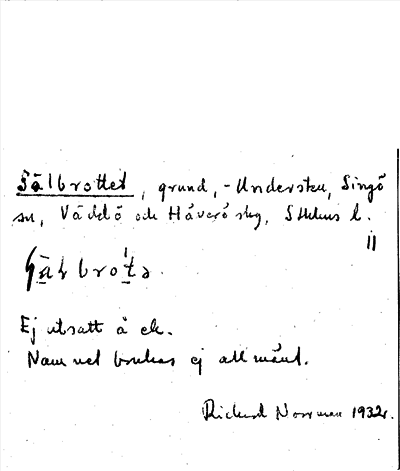 Sälbrottet, grund, -Understen, Singö
sn, Väddö och Häverö skg, Sthlms l.
||
Ej utsatt å ek.
Namnet brukas ej allmänt.
Richard Norrman 1932.